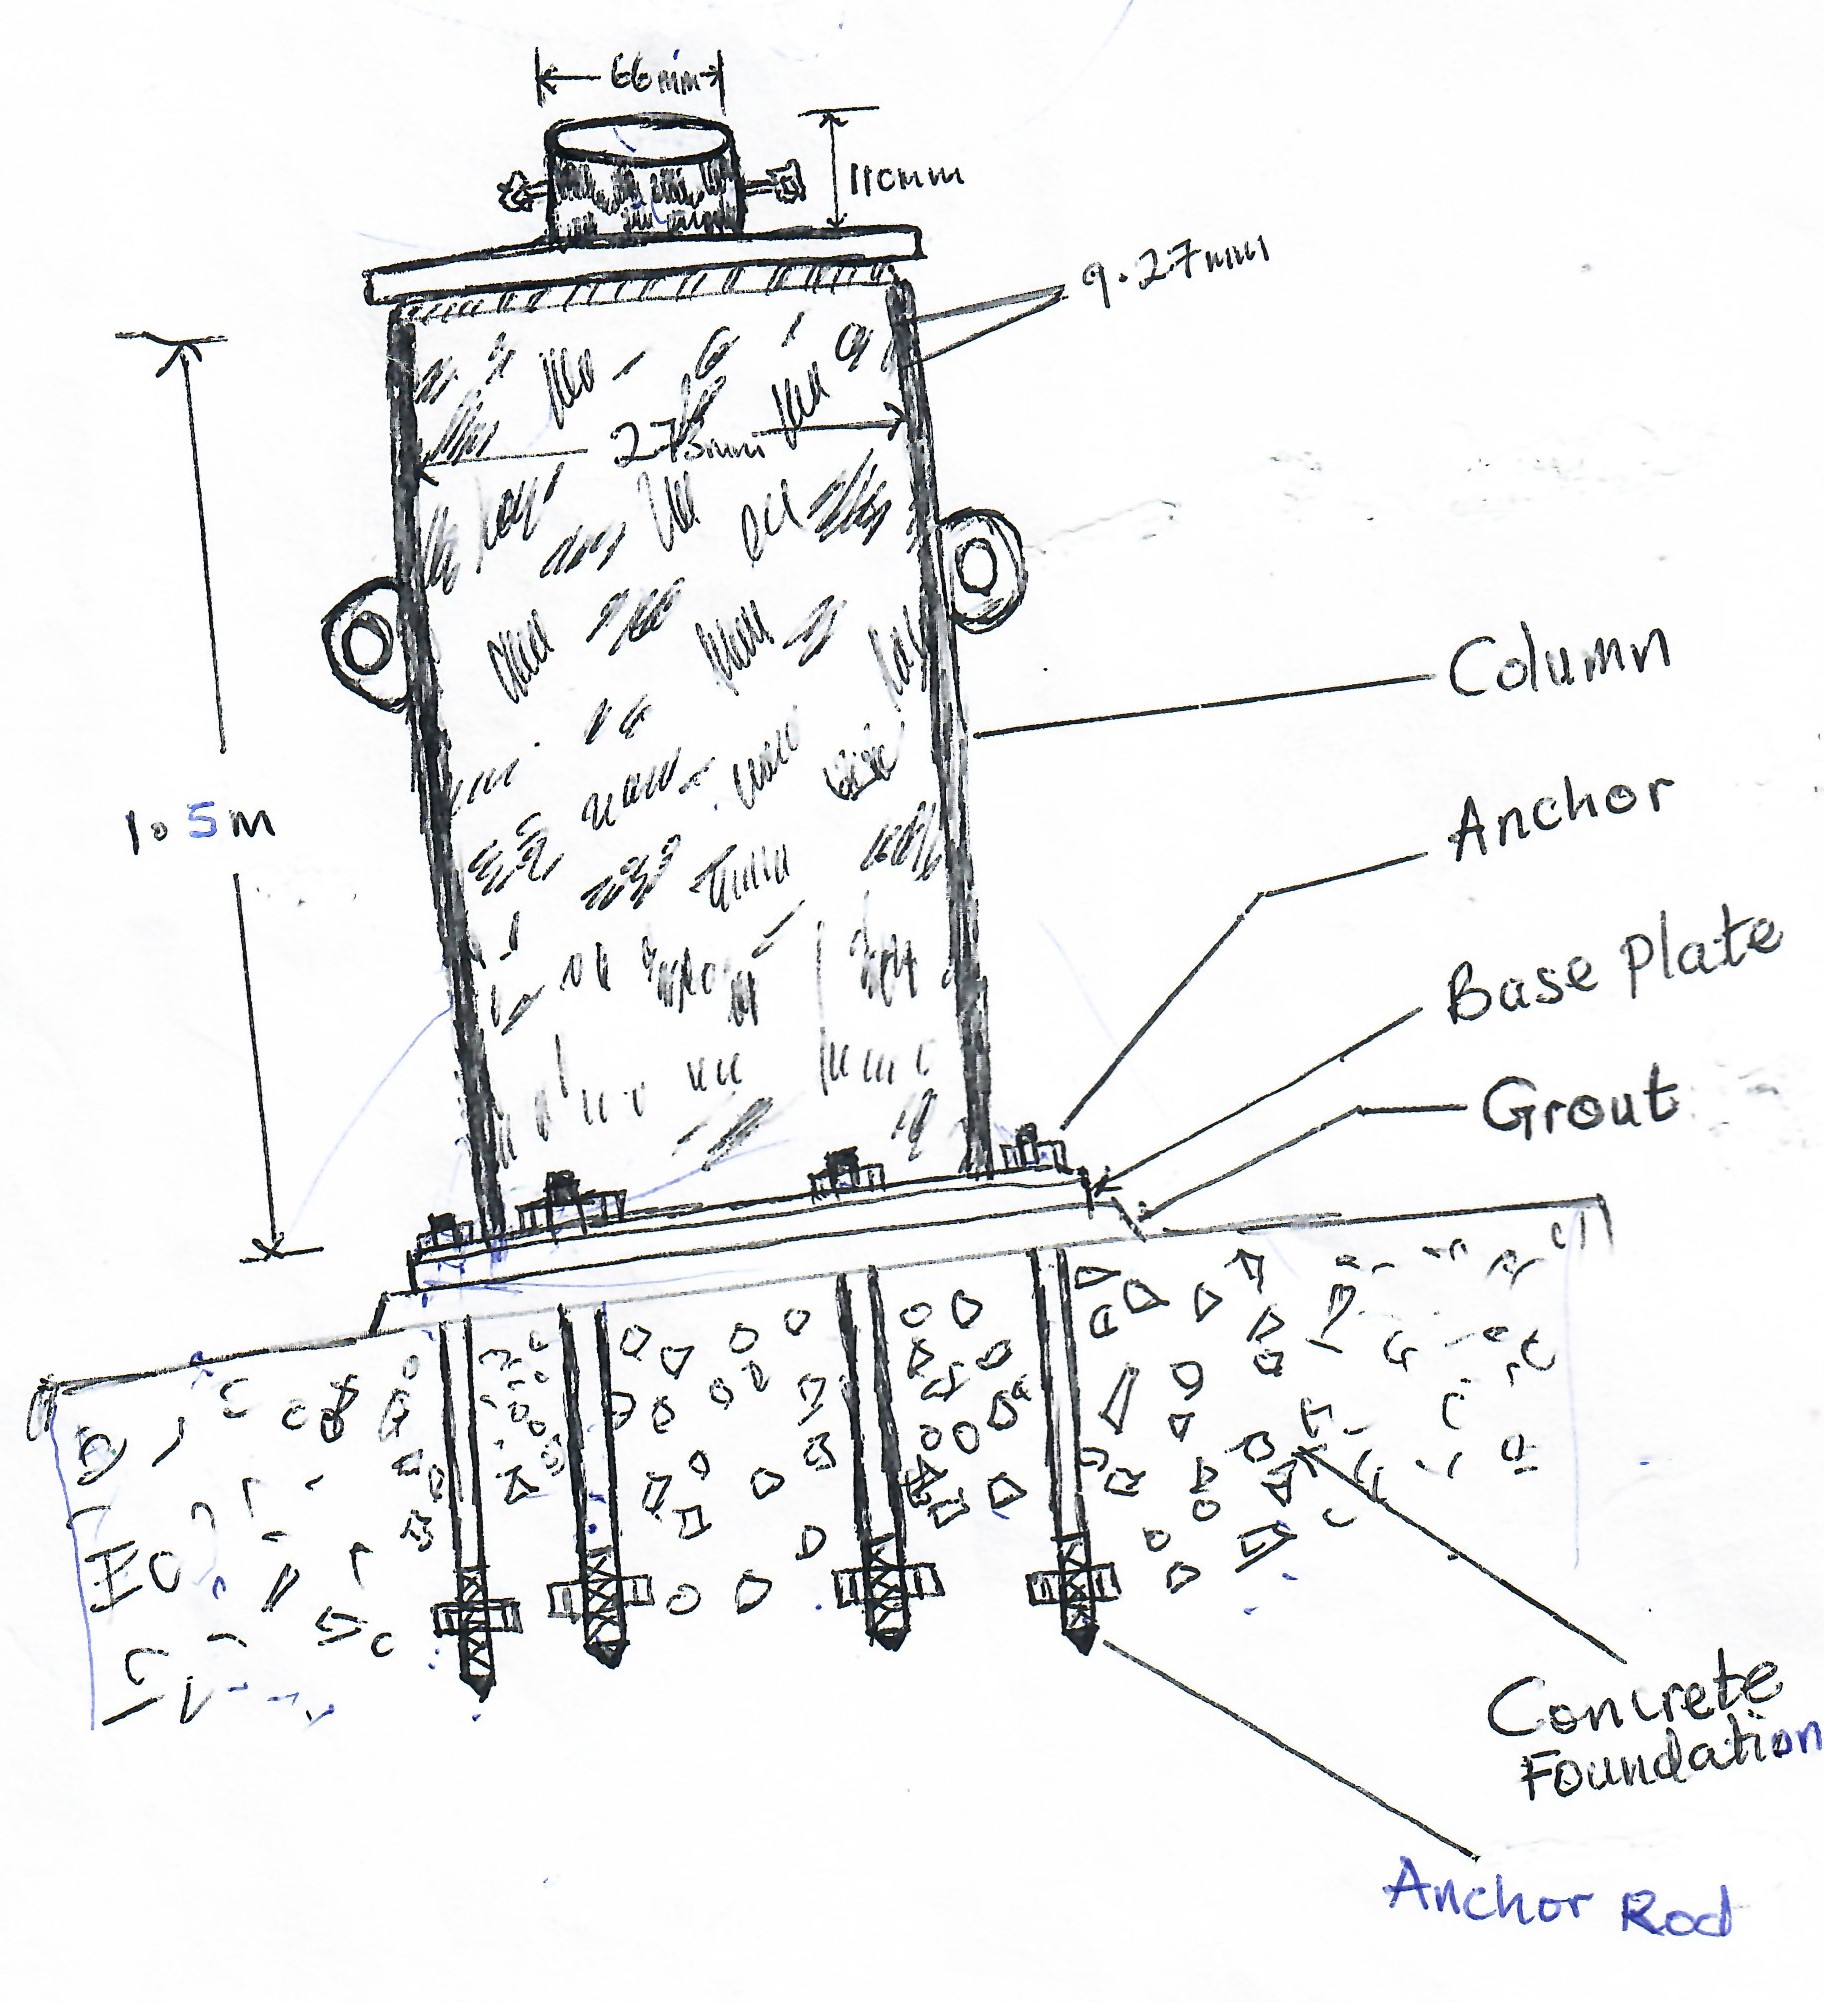 66mm
110mm
9.27mm
273mm
Column
1.5m
Anchor
Base Plate
Grout
Concrete
Foundation
Anchor Rod